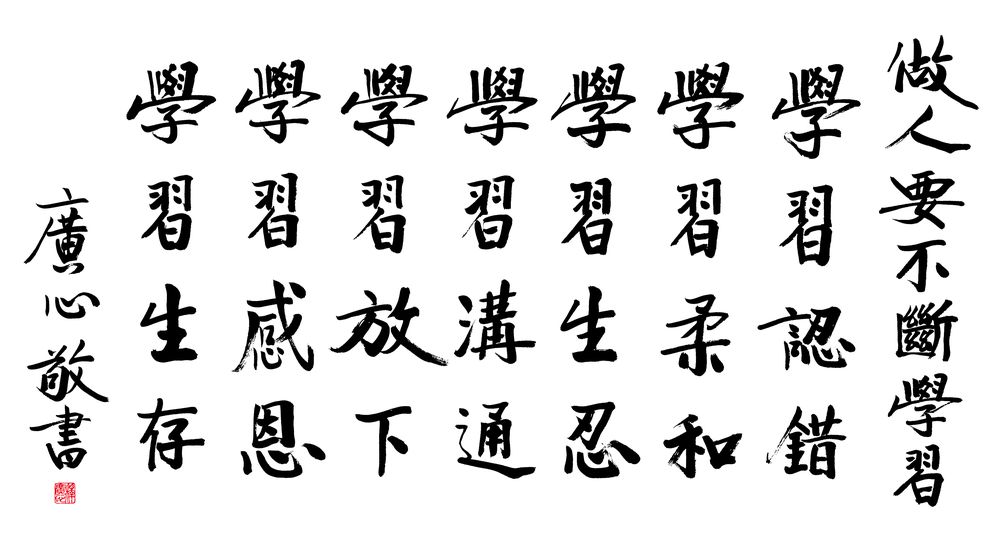 做人要不斷學習
學習認錯
學習柔和
學習生忍
學習溝通
學習放下
學習感恩
學習生存
廣心敬書